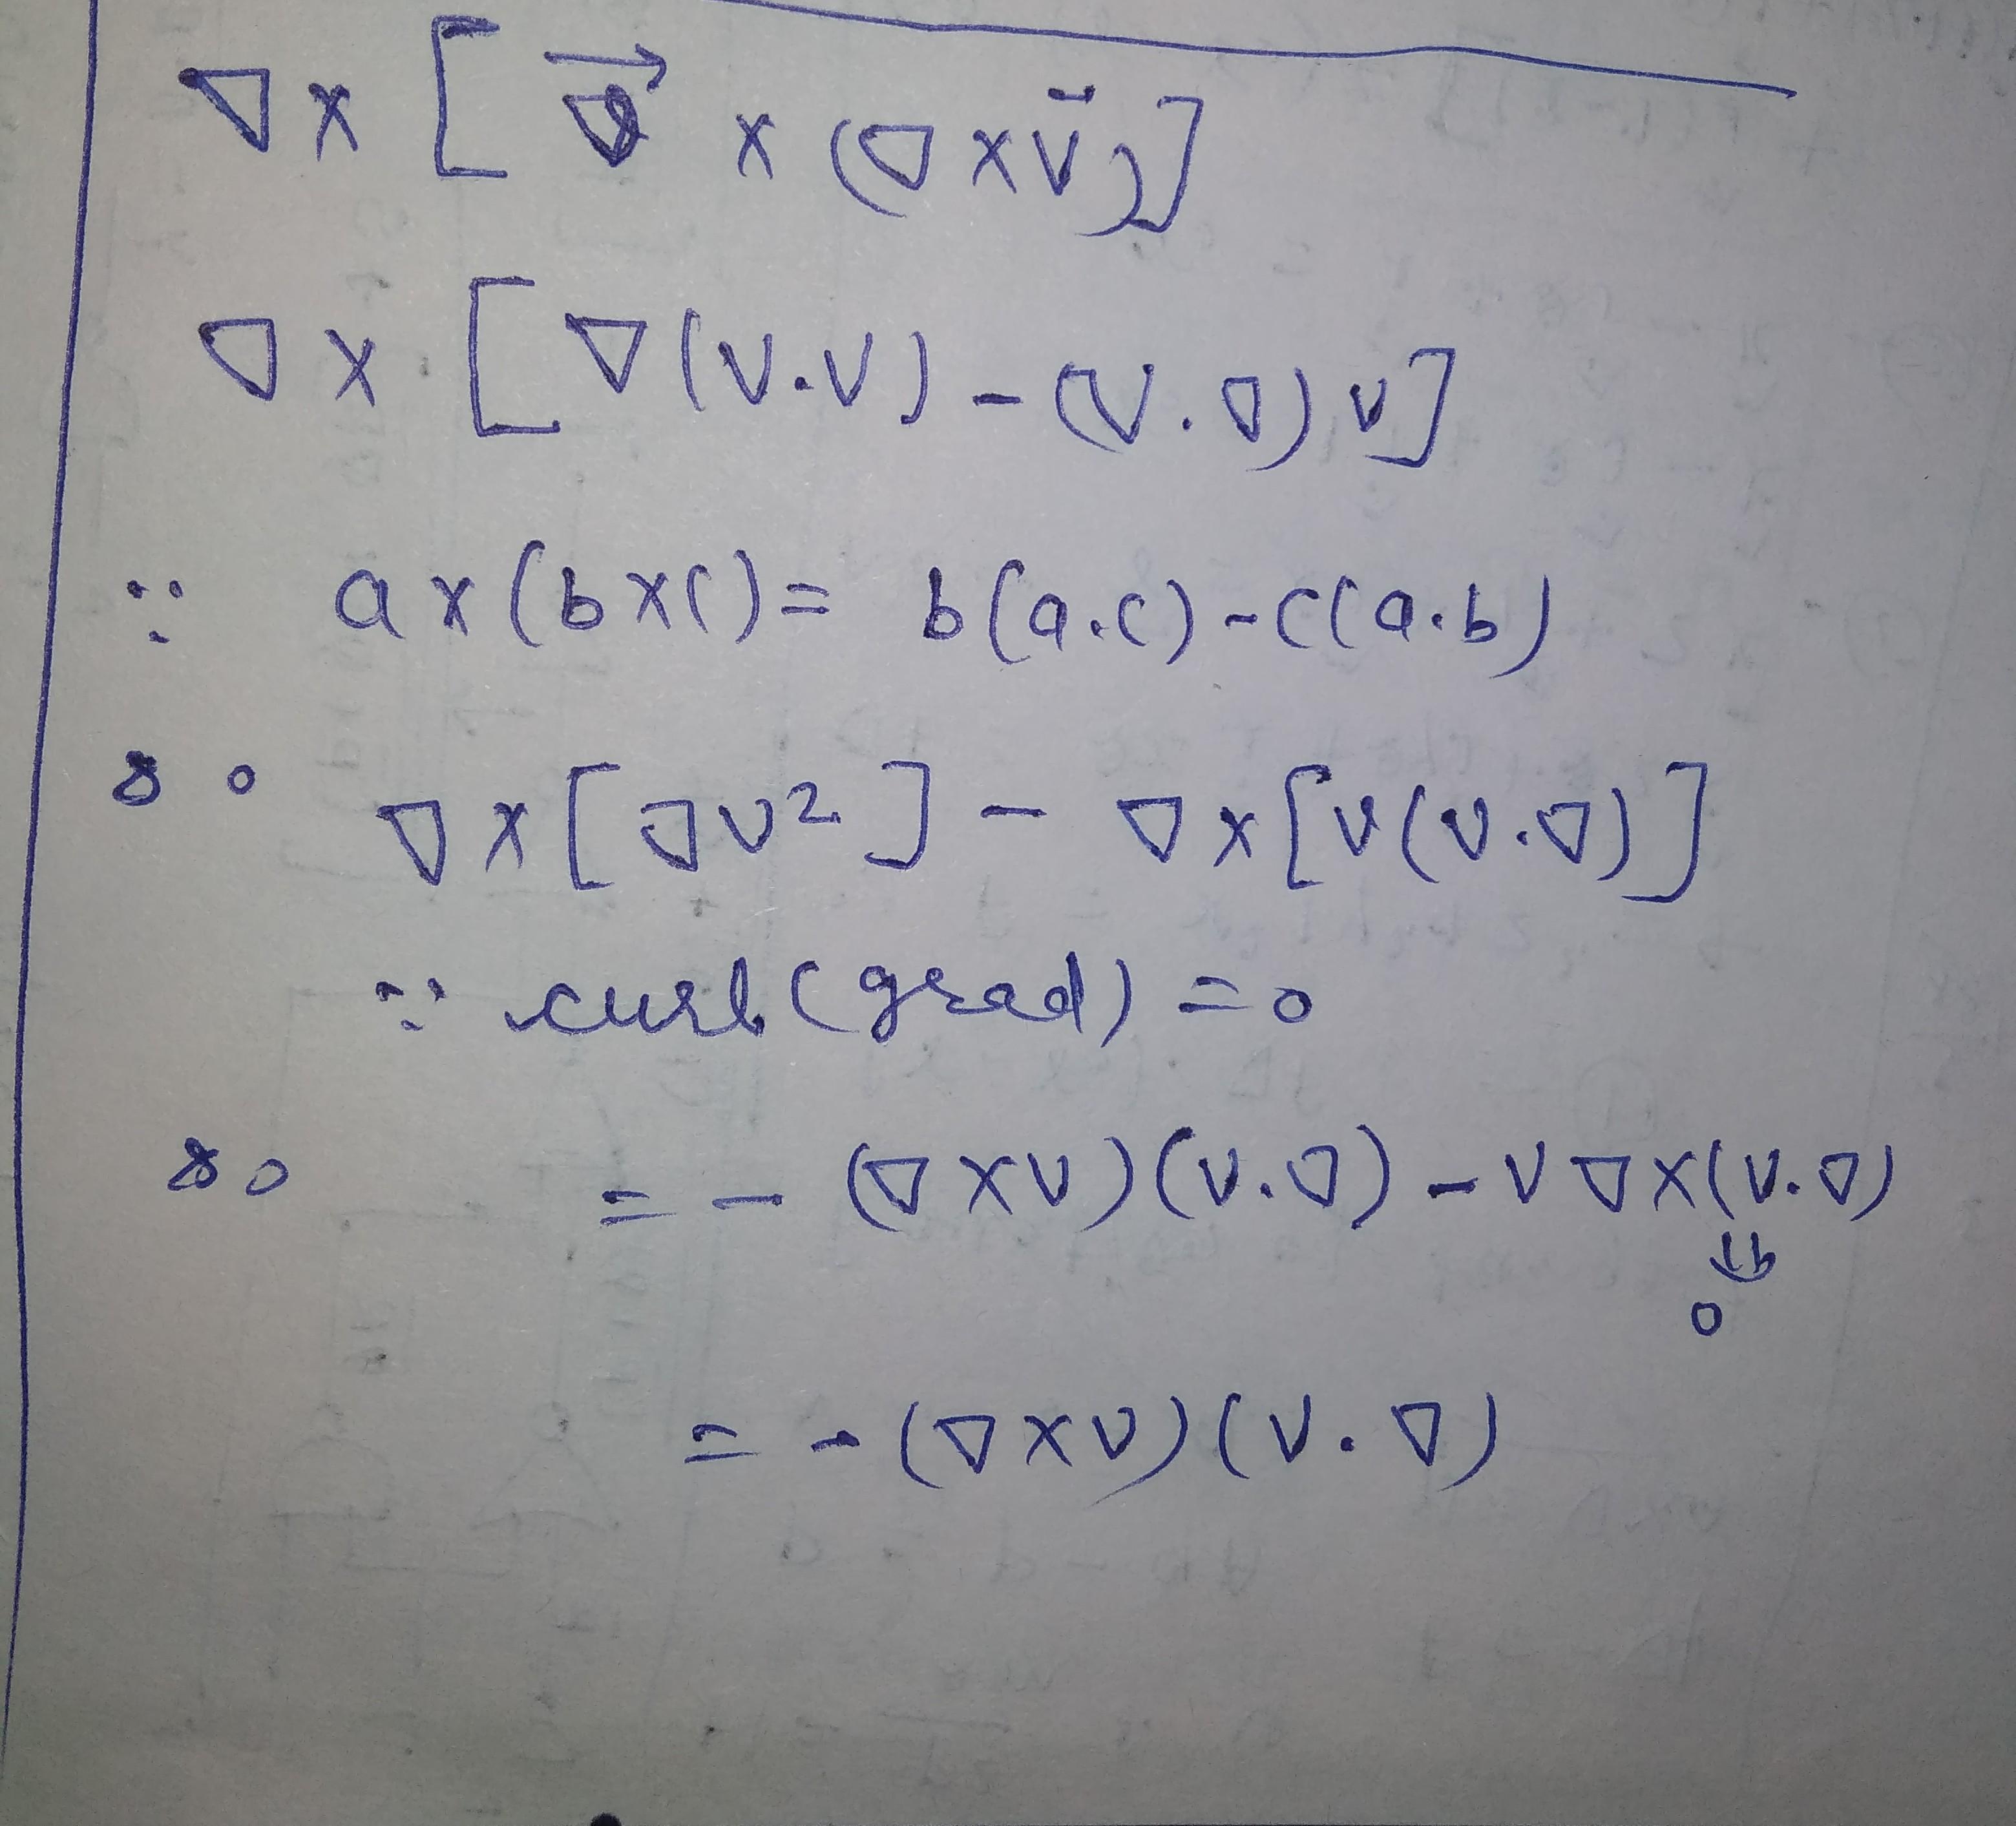 ∇ × [ v⃗ × (∇ × v̄)]
∇ × [ ∇(v.v) - (v.∇) v]
∵ a × (b × c) = b(a.c) - c(a.b)
so ∇ × [∇v²] - ∇ × [v(v.∇)]
∵ curl (grad) = 0
so = - (∇ × v)(v.∇) - v ∇ × (v.∇)
⇓
0
= - (∇ × v)(v.∇)